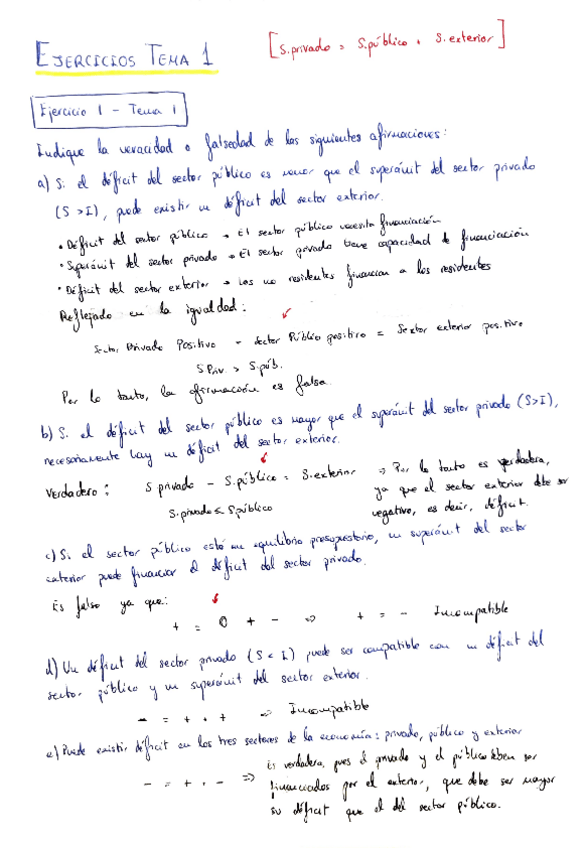 EJERCICIOS TEMA 1
[S.privado = S.público + S.exterior]
Ejercicio 1 - Tema 1
Indique la veracidad o falsedad de las siguientes afirmaciones:
a) Si el déficit del sector público es menor que el superávit del sector privado
(S > I), puede existir un déficit del sector exterior.
• Déficit del sector público → El sector público necesita financiación
• Superávit del sector privado → El sector privado tiene capacidad de financiación
• Déficit del sector exterior → Los no residentes financian a los residentes
Reflejado en la igualdad:
Sector Privado Positivo - Sector Público positivo = Sector exterior positivo
S Priv. > S.púb.
Por lo tanto, la afirmación es falsa.
b) Si el déficit del sector público es mayor que el superávit del sector privado (S>I),
necesariamente hay un déficit del sector exterior.
Verdadero: S privado - S.público = S.exterior => Por lo tanto es verdadera,
S.privado < S.público ya que el sector exterior debe ser
negativo, es decir, déficit.
c) Si el sector público está en equilibrio presupuestario, un superávit del sector
exterior puede financiar el déficit del sector privado.
Es falso ya que:
+ = 0 + - => + = - Incompatible
d) Un déficit del sector privado (S < I) puede ser compatible con un déficit del
sector público y un superávit del sector exterior.
- = + + + => Incompatible
e) Puede existir déficit en los tres sectores de la economía: privado, público y exterior
- = + + - => Es verdadera, pues el privado y el público deben ser
financiados por el exterior, que debe ser mayor
su déficit que el del sector público.